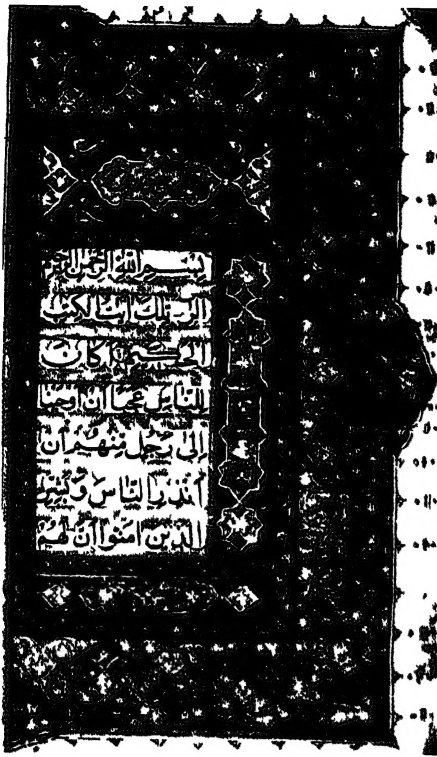 بِسْمِ اللَّهِ الرَّحْمَٰنِ الرَّحِيمِ
الر تِلْكَ آيَاتُ الْكِتَابِ
الْحَكِيمِ أَكَانَ
لِلنَّاسِ عَجَبًا أَنْ أَوْحَيْنَا
إِلَى رَجُلٍ مِنْهُمْ أَنْ
أَنْذِرِ النَّاسَ وَبَشِّرِ
الَّذِينَ آمَنُوا أَنَّ لَهُمْ